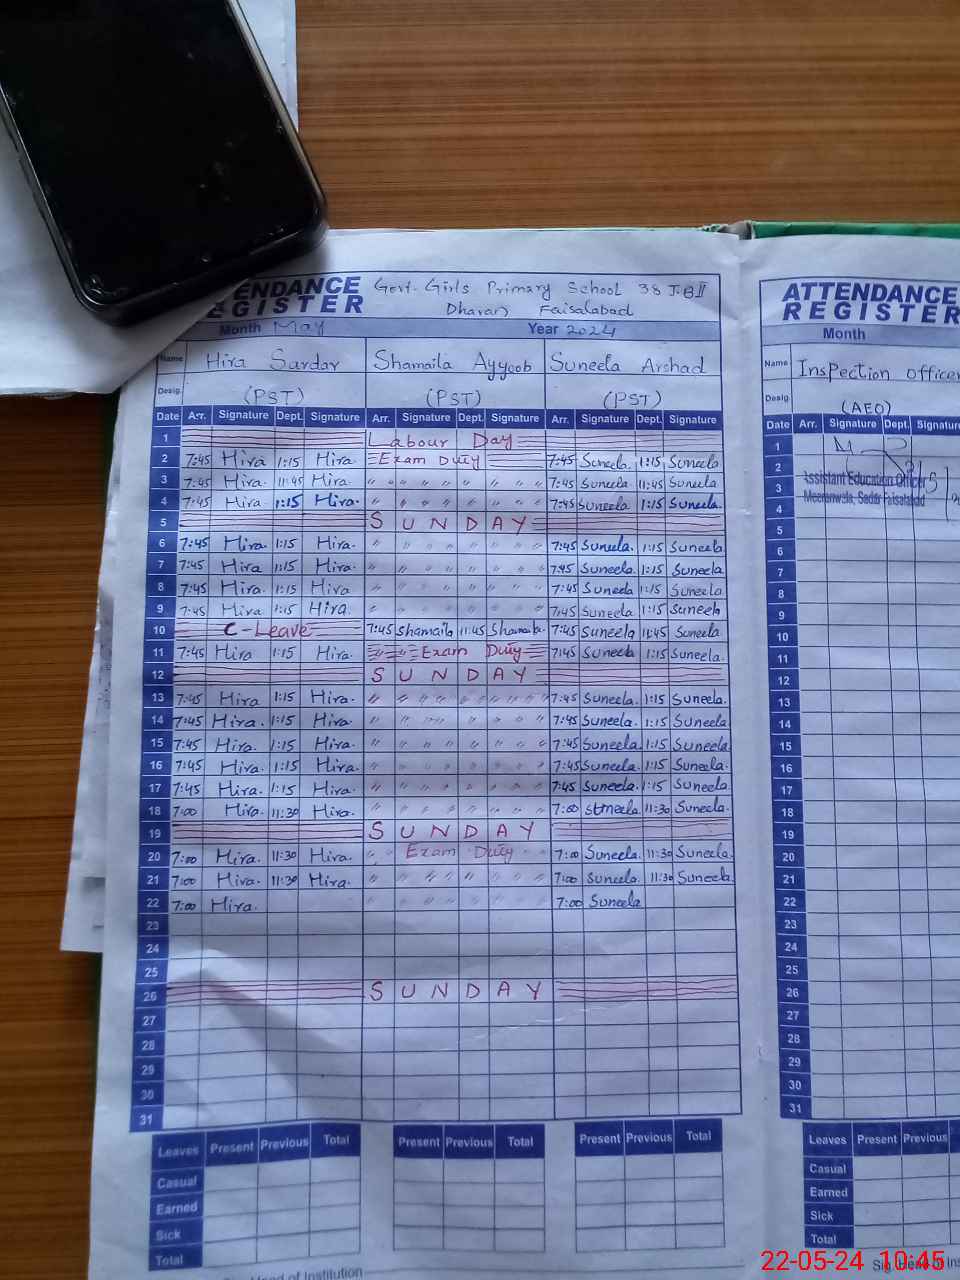 ENDANCE
EGISTER
Govt. Girls Primary School 38 J.B II
Dharan Faisalabad
Month May Year 2024
Name Hira Sardar Shamaila Ayyoob Suneela Arshad
Desig. (PST) (PST) (PST)
Date Arr. Signature Dept. Signature Arr. Signature Dept. Signature Arr. Signature Dept. Signature
1 Labour Day
2 7:45 Hira 1:15 Hira. Exam Duty 7:45 Suneela. 1:15 Suneela
3 7:45 Hira 11:45 Hira. " " " " " " 7:45 Suneela 11:45 Suneela.
4 7:45 Hira 1:15 Hira. " " " " " " 7:45 Suneela. 1:15 Suneela.
5 SUNDAY
6 7:45 Hira. 1:15 Hira. " " " " " " 7:45 Suneela. 1:15 Suneela.
7 7:45 Hira 1:15 Hira. " " " " " " 7:45 Suneela. 1:15 Suneela.
8 7:45 Hira 1:15 Hira " " " " " " 7:45 Suneela 1:15 Suneela.
9 7:45 Hira 1:15 Hira. " " " " " " 7:45 Suneela 1:15 Suneela
10 C-Leave 7:45 Shamaila 11:45 Shamaila. 7:45 Suneela 11:45 Suneela.
11 7:45 Hira 1:15 Hira. Exam Duty 7:45 Suneela 1:15 Suneela.
12 SUNDAY
13 7:45 Hira 1:15 Hira. " " " " " " 7:45 Suneela. 1:15 Suneela.
14 7:45 Hira. 1:15 Hira. " " " " " " 7:45 Suneela. 1:15 Suneela.
15 7:45 Hira. 1:15 Hira. " " " " " " 7:45 Suneela. 1:15 Suneela.
16 7:45 Hira. 1:15 Hira. " " " " " " 7:45 Suneela. 1:15 Suneela.
17 7:45 Hira. 1:15 Hira. " " " " " " 7:45 Suneela. 1:15 Suneela.
18 7:00 Hira. 11:30 Hira. " " " " " " 7:00 Suneela. 11:30 Suneela.
19 SUNDAY
20 7:00 Hira. 11:30 Hira. Exam Duty 7:00 Suneela. 11:30 Suneela.
21 7:00 Hira. 11:30 Hira. " " " " " " 7:00 Suneela. 11:30 Suneela.
22 7:00 Hira. " " " " " " 7:00 Suneela
23
24
25
26 SUNDAY
27
28
29
30
31
Leaves Present Previous Total Present Previous Total Present Previous Total
Casual
Earned
Sick
Total
Head of Institution
ATTENDANCE
REGISTER
Month
Name Inspection officer
Desig. (AEO)
Date Arr. Signature Dept. Signature
1
2
3 Assistant Education Officer
4 Meeranwala, Sadar Faisalabad
5
6
7
8
9
10
11
12
13
14
15
16
17
18
19
20
21
22
23
24
25
26
27
28
29
30
31
Leaves Present Previous
Casual
Earned
Sick
Total
Sig. Head of Ins
22-05-24 10:45